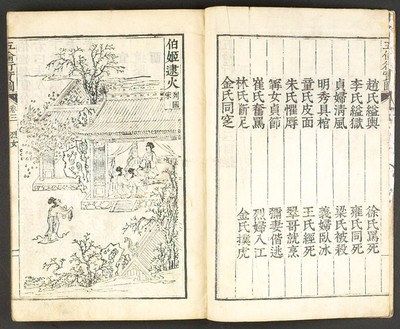 趙氏縊輿 徐氏罵死
李氏縊獄 雍氏同死
貞婦清風 梁氏被殺
明秀具棺 義婦臥冰
童氏皮面 王氏經死
朱氏懼辱 翠哥就烹
甯女貞節 彌妻偕逃
崔氏奮罵 烈婦入江
林氏斷足 金氏撲虎
金氏同窆
伯姬逮火
列國
宋
五倫行實圖 卷三 烈女